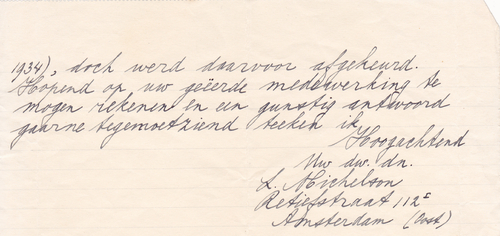 1934), doch werd daarvoor afgekeurd.
Hopend op uw geëerde medewerking te
mogen rekenen en een gunstig antwoord
gaarne tegemoetziend teeken ik
Hoogachtend
Uw dw. dn.
L. Michelson
Retiefstraat 112ᴵ
Amsterdam (Oost)